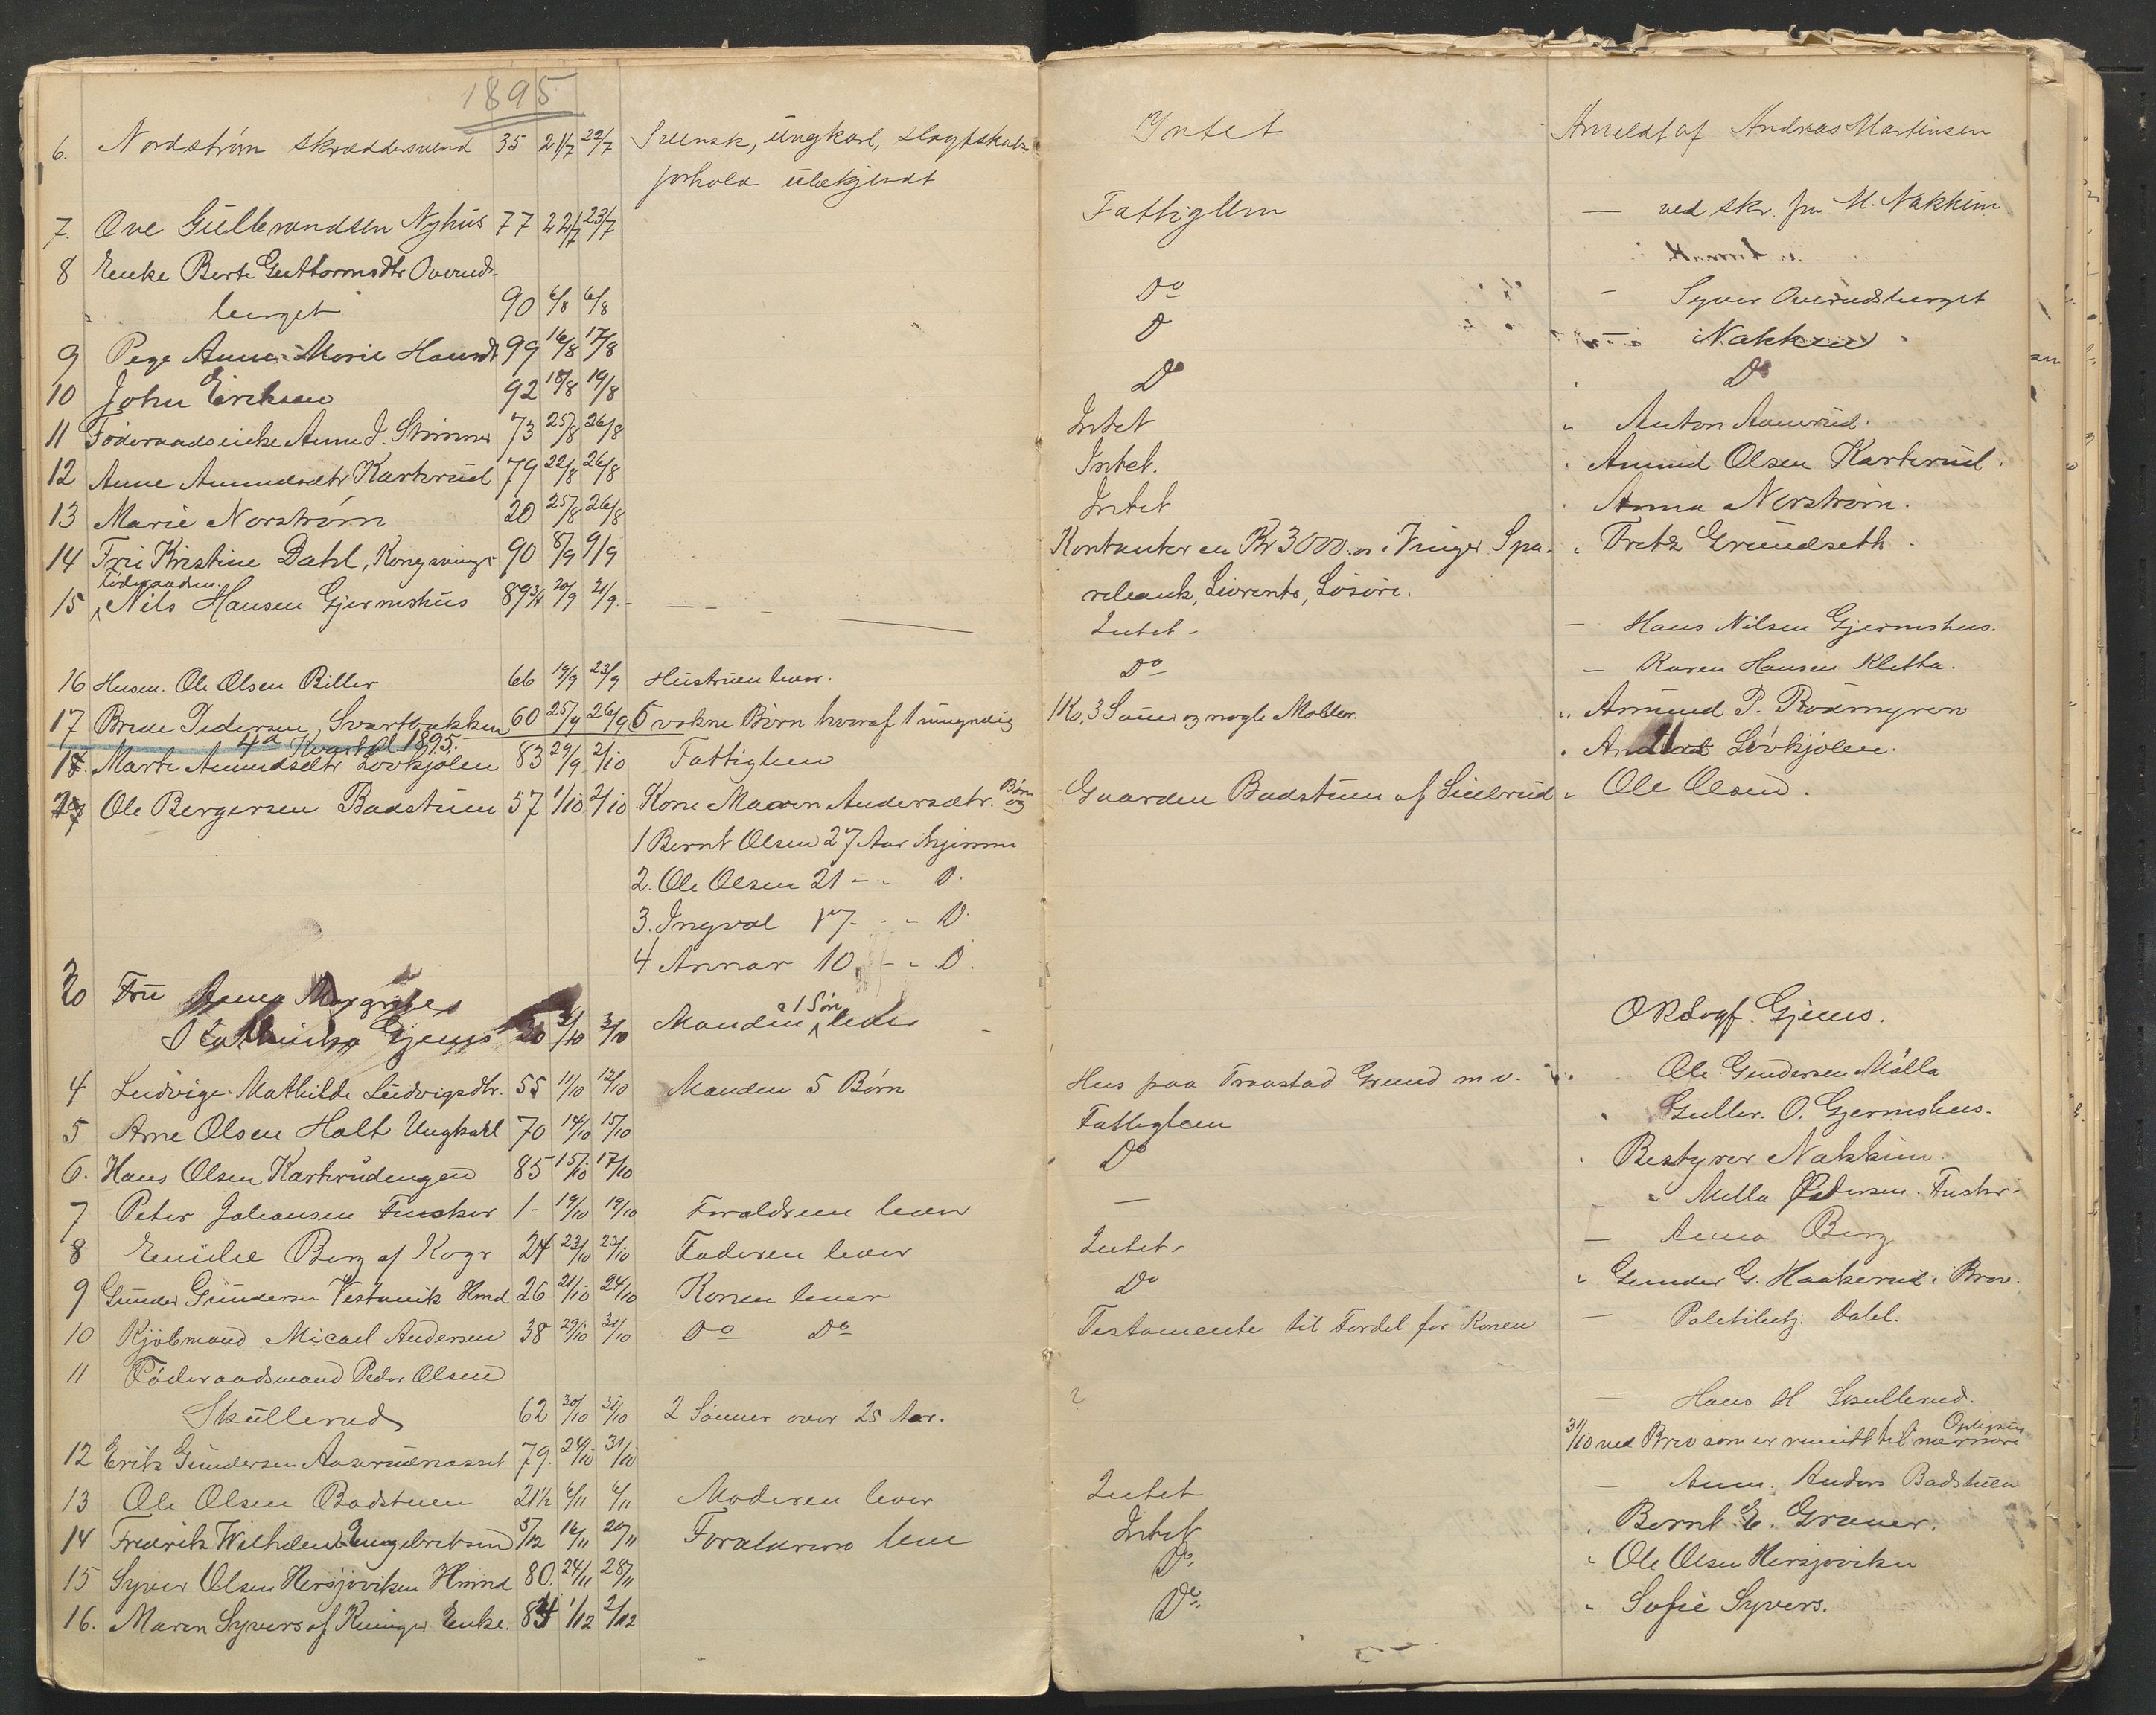 1895
6. Nordstrøm Skræddersvend 35 21/7 22/7 Svensk, ungkarl, Slægtskabs- Intet Anmeldt af Andreas Martinsen
forhold ubekjendt
7. Ove Gulbrandsen Nyhus 77 22/7 23/7 Fattiglem — ved skr. fra M. Nakkim
8 Enke Berte Guttormsdtr Overuds-
berget 90 6/8 6/8 Do - Syver Overudsberget
9 Pige Anne Marie Hansdt 99 16/8 17/8 D — Nakkim
10 John Eriksen 92 18/8 19/8 Do Do
11 Føderaadsenke Anne J. 73 25/8 26/8 Intet " Anton
12 Anne Amundsdtr Karterud 79 22/8 26/8 Intet. " Amund Olsen Karterud.
13 Marie Norstrøm 20 25/8 26/8 Intet Anna Norstrøm.
14 Fru Kristine Dahl, Kongsving. 90 8/9 9/9 Kontanter ca Kr 3000.00 i Vinger Spa- " Fritz Grundseth.
rebank, Livrente, Løsøre.
Føderaadsm.
15 Nils Hansen Gjermshus 89 3/4 20/9 21/9 - Intet - — Hans Nilsen Gjermshus.
16 Husm. Ole Olsen Biller 66 19/9 23/9 Hustruen lever. Do — Karen Hansen Kletta.
17 Brede Pedersen Svartbakken 60 25/9 26/9 5 voksne Børn hvoraf 1 umyndig 1 Ko, 3 Sauer og nogle Møbler. " Amund P.
4d Kvartal 1895.
1. Marte Amundsdtr Løvkjølen 83 29/9 2/10 Fattiglem Løvkjølen.
2 Ole Bergersen Badstuen 57 1/10 2/10 Kone Maren Andersdtr. og Børn Gaarden Badstuen af " Ole Olsen.
1 Bernt Olsen 27 Aar hjemme
2. Ole Olsen 21 - " D.
3. Ingval 17 - " D.
4. Annar 10 - " D.
3 Fru Anna Margrethe
Gjems 30 3/10 Manden & 1 Søn lever - Gjems.
4 Ludvige Mathilde Ludvigsdtr. 55 11/10 12/10 Manden 5 Børn Hus paa Traastad Grund m v. " Ole Gundersen Mølla
5 Arne Olsen Holt Ungkarl 70 14/10 15/10 Fattiglem " Gulbr. O. Gjermshus.
6. Hans Olsen Karterudengen 85 15/10 17/10 Do " Bestyrer Nakkim.
7 Peter Johansen 1 - 19/10 19/10 Forældrene lever — " Milla Pedersen
8 Emilie Berg af Kogr 24 23/10 23/10 Faderen lever Intet - — Anna Berg
9 Gunder Gundersen Vestmvik Hmd 26 21/10 24/10 Konen lever Do " Gunder G. Haakerud i Brev.
10 Kjøbmand Micael Andersen 38 29/10 30/10 Do Do Testamente til Fordel for Konen — Politibetj. Dahl.
11 Føderaadsmand Peder Olsen
Skullerud 62 30/10 31/10 2 Sønner over 25 Aar. ? — Hans H Skullerud.
12 Erik Gundersen 79. 24/10 31/10 31/10 ved Brev som er remitt til nærmere Oplysn.
13 Ole Olsen Badstuen 21 1/2 6/11 6/11 Moderen lever Intet — Anm. Anders Badstuen
14 Fredrik Wilhelm Engebretsen 5/12 16/11 20/11 Forældrene leve Intet " Bernt E. Graner.
15 Syver Olsen Hersjøviken Hmnd 80. 24/11 28/11 Do. " Ole Olsen Hersjøviken
16. Maren Syvers af Kninger Enke. 84 1/12 2/12 Do. " Sofie Syvers.